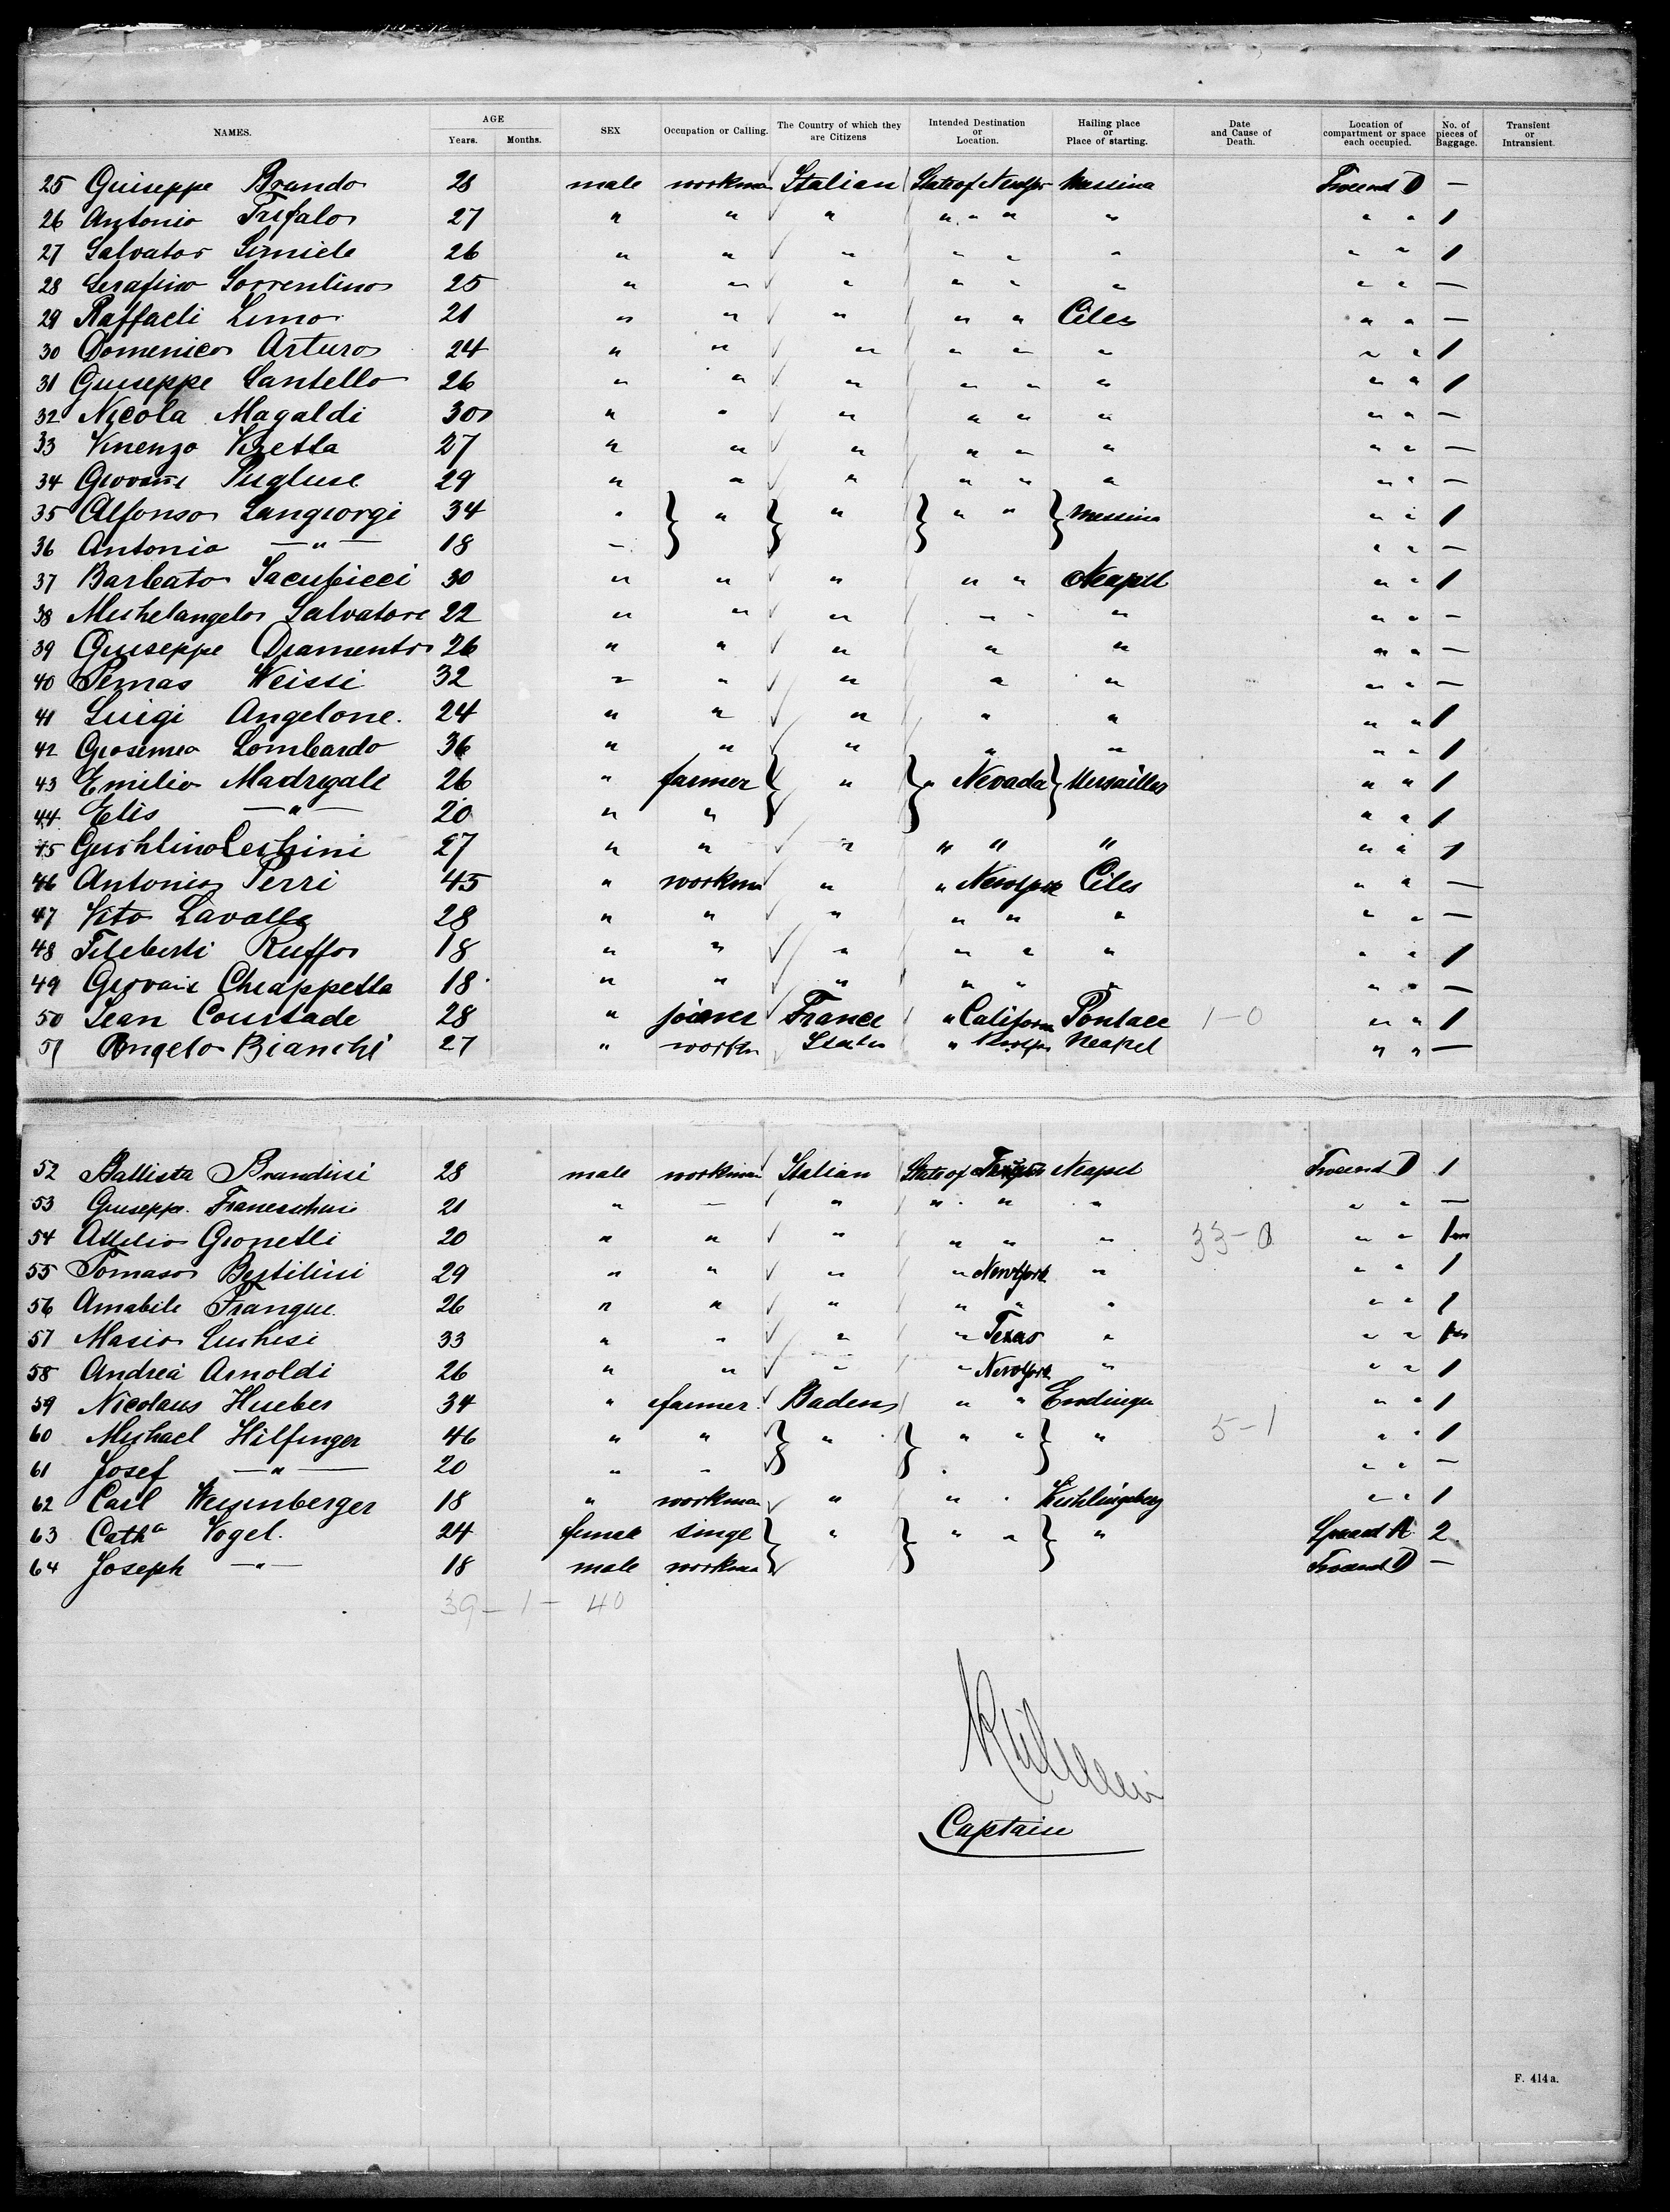 NAMES. AGE Years. Months. SEX Occupation or Calling. The Country of which they are Citizens Intended Destination or Location. Hailing place or Place of starting. Date and Cause of Death. Location of compartment or space each occupied. No. of pieces of Baggage. Transient or Intransient.
25 Guiseppe Brando 28 male workman Italian State of Messina —
26 Antonio Trifalo 27 " " " " " " " " 1
27 Salvator 26 " " " " " " " " 1
28 Serafino Sorrentino 25 " " " " " " " " —
29 Raffaeli Limo 21 " " " " " Ciles " " —
30 Domenico Arturo 24 " " " " " " " " 1
31 Guiseppe Santello 26 " " " " " " " " 1
32 Nicola Magaldi 30 " " " " " " " " —
33 Vinenzo 27 " " " " " " " " —
34 Giovani Pugliese 29 " " " " " " " " —
35 Alfonso Langiorgi 34 " " " " " Messina " " 1
36 Antonio — " — 18 — " " —
37 Barbato 30 " " " " " Neapel " " 1
38 Michelangelo Salvatore 22 " " " " " " " " —
39 Guiseppe Diamento 26 " " " " " " " —
40 Weissi 32 " " " " " " " —
41 Luigi Angelone. 24 " " " " " " " 1
42 Lombardo 36 " " " " " " " 1
43 Emilio Madrigali 26 " farmer " " Nevada Versailles " " 1
44 Elis — " — 20 " " " " 1
45 27 " " " " " " " " 1
46 Antonio Perri 45 " workman " " Newyork Ciles " " —
47 Vito Lavalle 28 " " " " " " " " —
48 Ruffo 18 " " " " " " " " 1
49 Giovani Chiappetta 18 " " " " " " " " —
50 Jean Courtade 28 " joiner France " Californ Pontacc 1-0 " " 1
51 Angelo Bianchi 27 " " Neapel " " —
52 Battista Brandini 28 male workman Italian State of Neapel 1
53 Guiseppe Franceschini 21 " — " " " " " " —
54 Attilio Gionetti 20 " " " " " " 33-0 " " 1
55 Tomaso Bertilini 29 " " " " Newyork " " " 1
56 Amabile Franque 26 " " " " " " " " 1
57 Masio Luchesi 33 " " " " Texas " " " 1
58 Andrea Arnoldi 26 " " " " Newyork " " " 1
59 Nicolaus Hueber 34 " farmer Baden " " Endingen " " 1
60 Michael Hilfinger 46 " " " " " " 5-1 " " 1
61 Josef — " — 20 " " " " " —
62 Carl 18 " workman " " " " " 1
63 Cath^a Vogel. 24 female singe " " " " 2
64 Joseph — " — 18 male workman —
39 - 1 - 40
Captain
F. 414a.